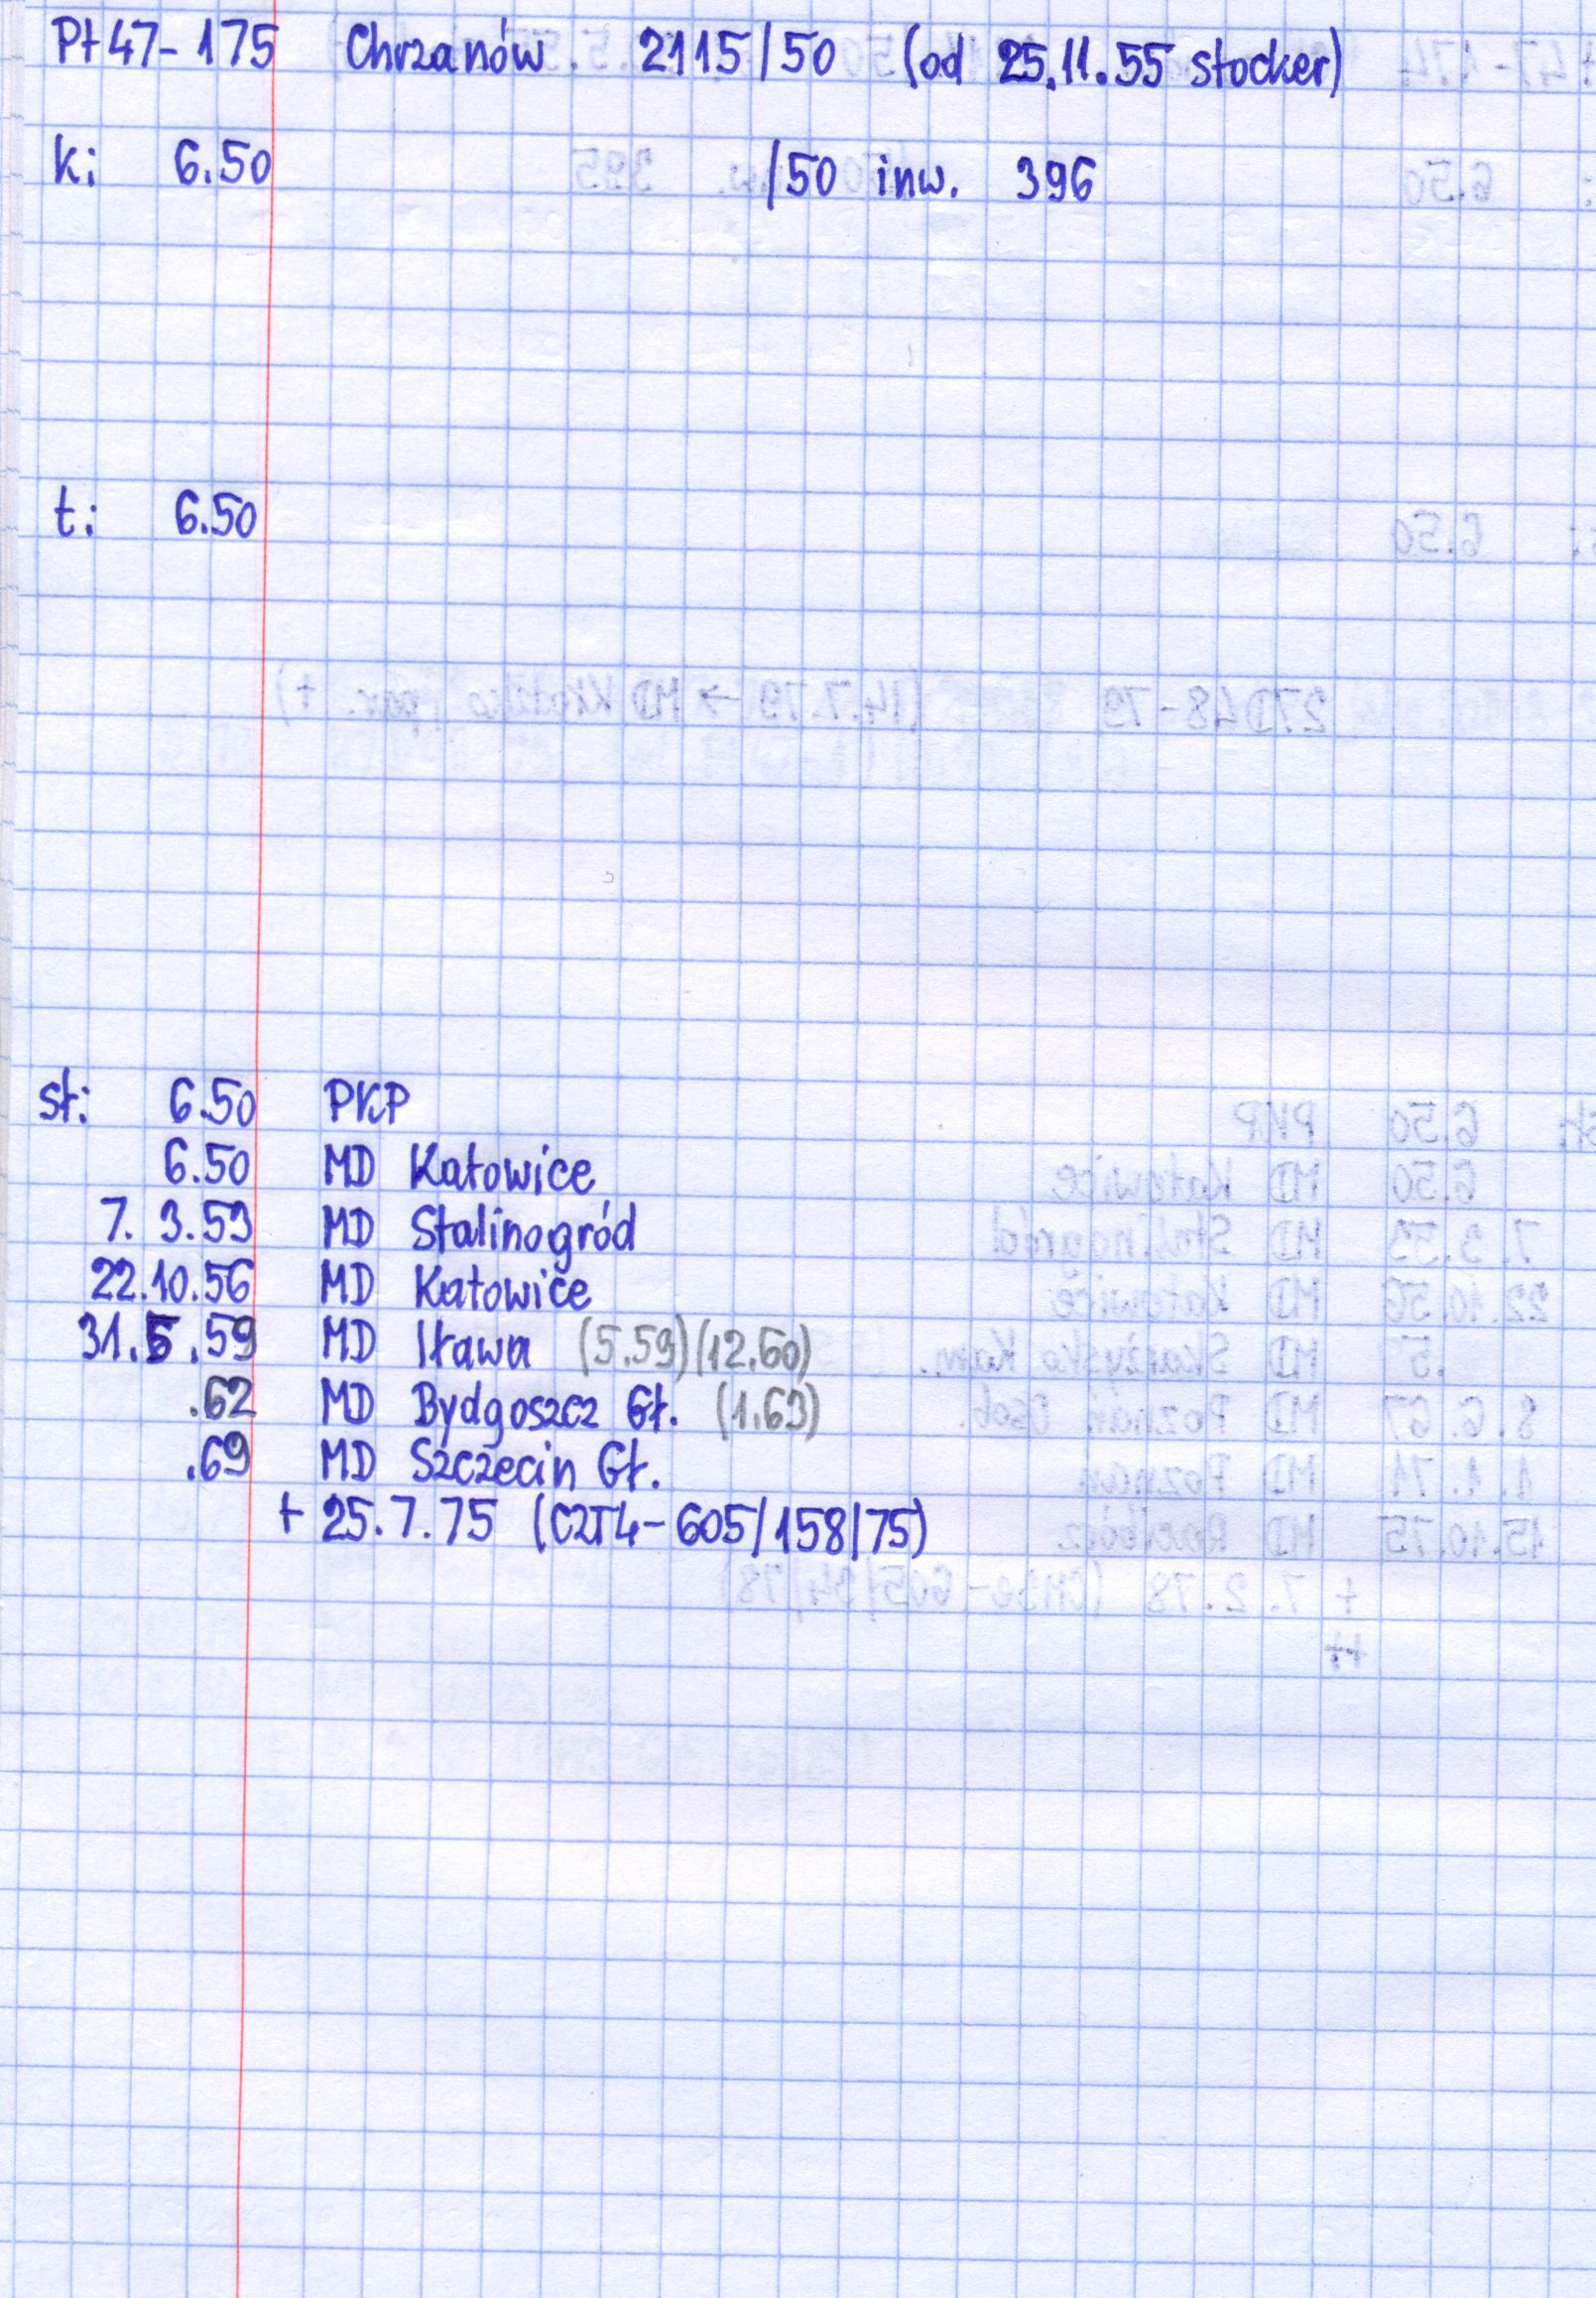 Pt47-175 Chrzanów 2115/50 (od 25.11.55 stocker)
k: 6.50 /50 inw. 396
t: 6.50
st: 6.50 PKP
6.50 MD Katowice
7. 3.53 MD Stalinogród
22.10.56 MD Katowice
31.5.59 MD Iława (5.59)(12.60)
.62 MD Bydgoszcz Gł. (1.63)
.69 MD Szczecin Gł.
+ 25.7.75 (CZT4-605/158/75)